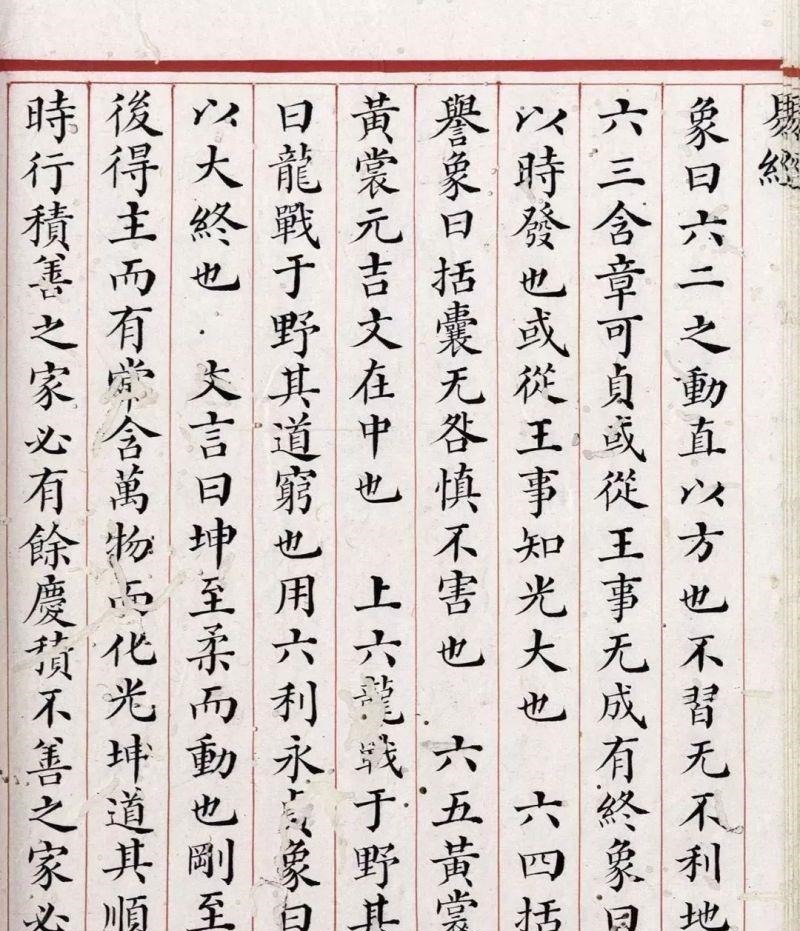 易經
象曰六二之動直以方也不習无不利地
六三含章可貞或從王事无成有終象曰
以時發也或從王事知光大也 六四括
譽象曰括囊无咎慎不害也 六五黃裳
黃裳元吉文在中也 上六龍戰于野其
曰龍戰于野其道窮也用六利永貞象曰
以大終也 文言曰坤至柔而動也剛至
後得主而有常含萬物而化光坤道其順
時行積善之家必有餘慶積不善之家必